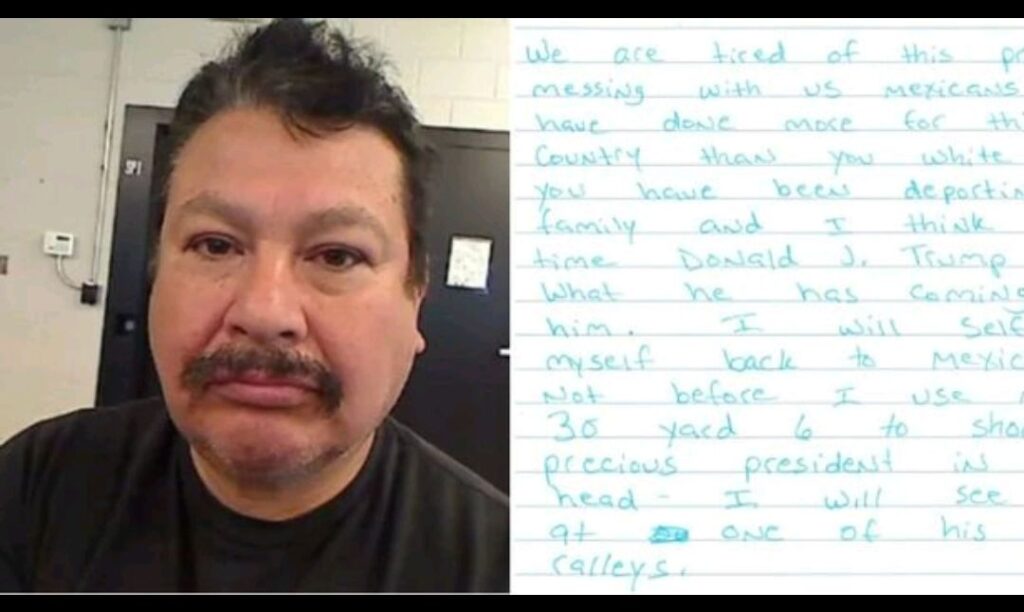 We are tired of this pr
messing with us mexicans
have done more for thi
Country than you white
you have been deportin
family and I think
time Donald J. Trump
What he has coming
him. I will self
myself back to mexic
Not before I use
30 yard 6 to sho
precious president in
head - I will see
at one of his
ralleys.